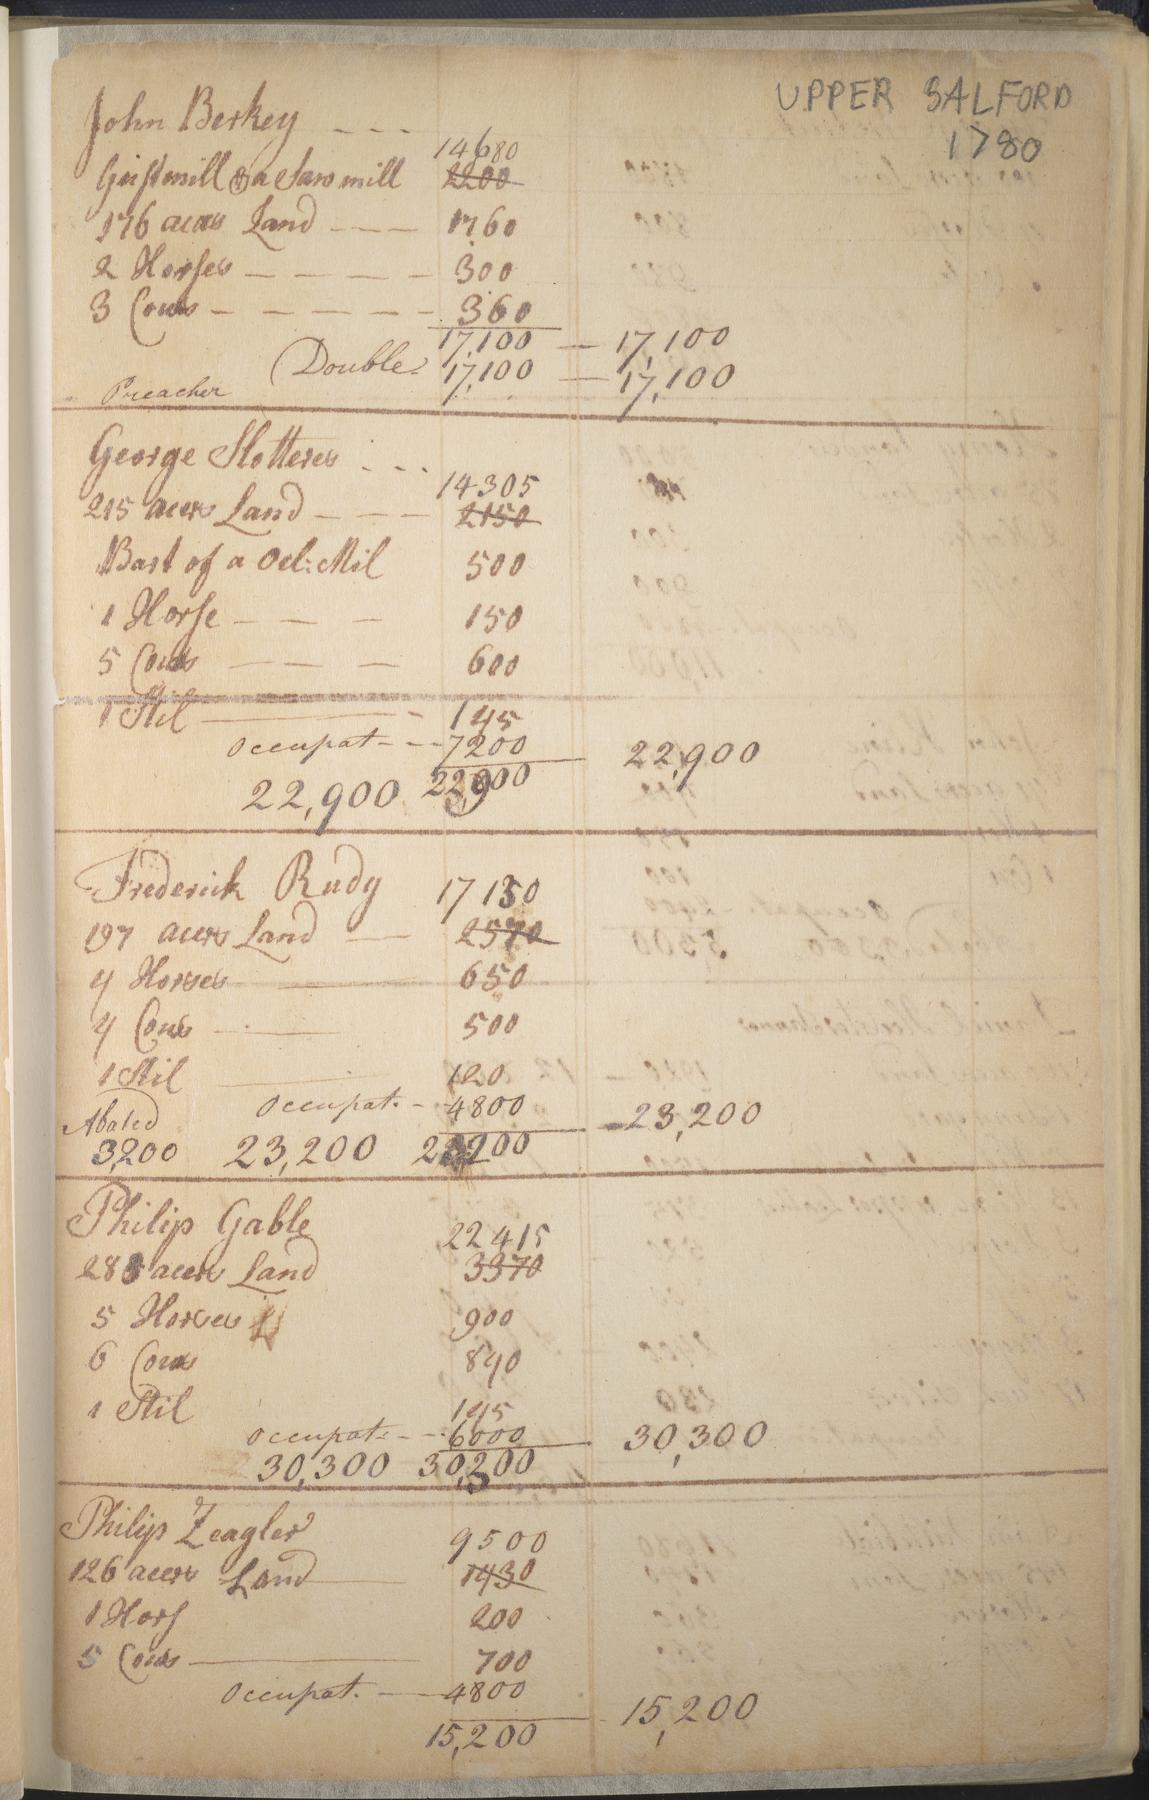 UPPER SALFORD
1780
John Berkey - - -
14680
Gristmill & a Saw mill 2200
176 acers Land - - - 1760
2 Horses - - - - 300
3 Cows - - - - - 360
17,100 - 17,100
(Double. 17,100 - 17,100
Preacher
George Slotterer - - -
14305
215 acers Land - - - 2150
Bart of a Oel: Mil 500
1 Horse - - - 150
5 Cows - - - 600
1 Stil - 145
Occupat - - - 7200
22,900
22,900 22,900
Frederick Rudy 17130
197 acers Land - 2570
4 Horses - 650
4 Cows - 500
1 Stil 120
Occupat. - 4800
Abated - 23,200
3,200 23,200
Philip Gable
22415
285 acers Land 3370
5 Horses 900
6 Cows 840
1 Stil 145
Occupat. - - 6000
30,300
30,300 30,300
Philip Zeagler
9500
126 acers Land - 1430
1 Hors 200
5 Cows - 700
Occupat. - 4800
15,200
15,200